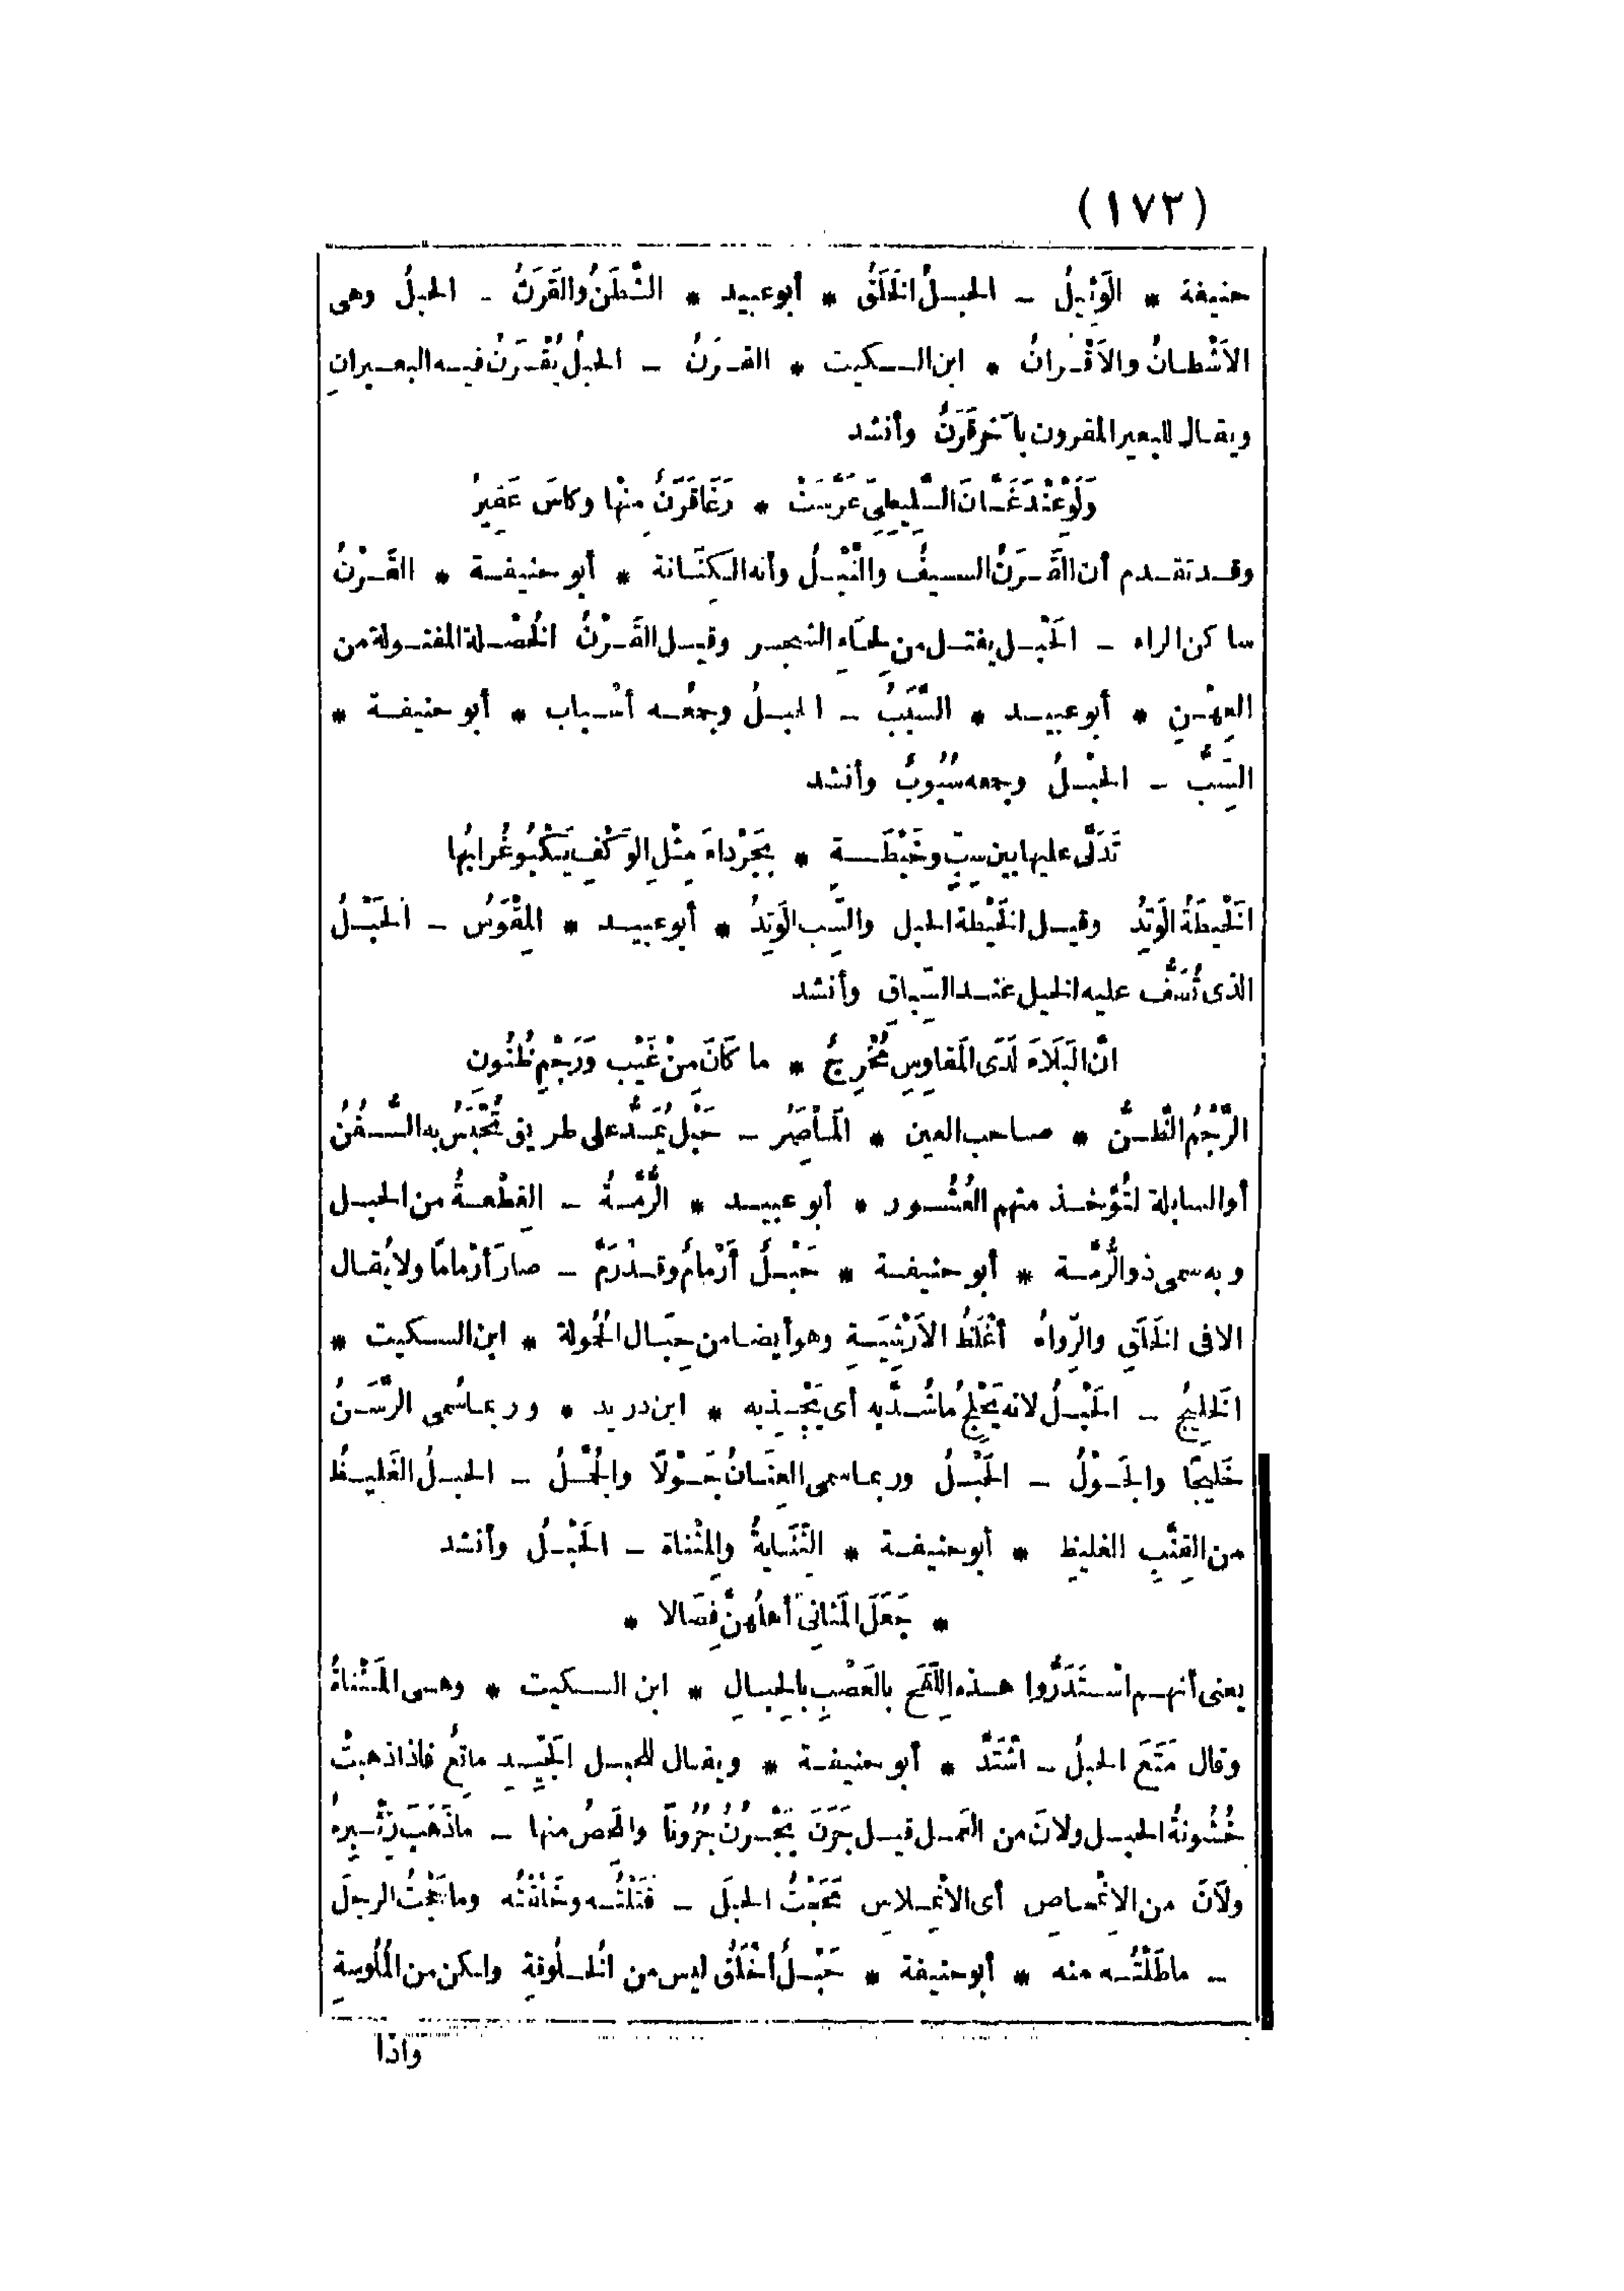 (١٧٢)
حنيفة * الوَئِيلُ - الحبلُ الخَلَقُ * أبو عبيد * الشَّطَنُ والقَرَنُ - الحبلُ وهى
الاَشْطانُ والاَقْرانُ * ابن السكيت * القرَنُ - الحبلُ يُقْرَنُ فيه البعيرانِ
ويقال للبعير المقرون بآخر قَرَنٌ وأنشد
وَلَوْ عِنْدَ غَسَّانَ السَّلِيطِىِّ عَرَّسَتْ * رَغَا قَرَنٌ مِنْها وكاسَ عَقِيرُ
وقد تقدم أن القَرَنُ السيفُ والنَّبْلُ وأنه الكِنَانة * أبو حنيفة * القَرْنُ
ساكن الراء - الحَبْل يفتل من لِحَاءِ الشجر وقيل القَرْنُ الخُصْلة المفتولة من
العِهْنِ * أبو عبيد * السَّبَبُ - الحبلُ وجمعُه أسْباب * أبو حنيفة *
السِّبُّ - الحَبْلُ وجمعه سُبُوبٌ وأنشد
تَدَلَّى عليها بين سِبٍّ وخَيْطَةٍ * بِجَرْداءَ مِثْلِ الوَكْفِ يَكْبُو غُرابُها
الخَيْطَةُ الوَتِدُ وقيل الخَيْطة الحبل والسِّب الوَتِدُ * أبو عبيد * المِقْوَسُ - الحَبْلُ
الذى تُصَفُّ عليه الخيل عند السِّباقِ وأنشد
انَّ البَلَاءَ لَدَى المَقاوِسِ مُخْرِجٌ * ما كَانَ مِنْ غَيْبٍ وَرَجْمِ ظُنُون
الرَّجْمُ الظَّنُّ * صاحب العين * المَأْصِرُ - حَبْل يُمَدُّ على طريق تُحْبَسُ به السُّفُنُ
أو السابلة لتُؤْخذ منهم العُشُور * أبو عبيد * الرُّمَّةُ - القِطْعةُ من الحبل
وبه سمى ذو الرُّمَّة * أبو حنيفة * حَبْلٌ أَرْمامٌ وقد رَمَّ - صارَ أرْمامًا ولا يُقال
الا فى الخَلَقِ والرِّواءُ أغْلَظُ الأَرْشِيَةِ وهو أيضا من حِبَال الحُمولة * ابن السكيت *
الخَلِيجُ - الحَبْلُ لانه يَخْلِجُ ما شُدَّ به أى يَجْذِبه * ابن دريد * وربما سُمى الرَّسَنُ
خَلِيجًا والجَوْلُ - الحَبْلُ وربما سمى العِنَانُ جَوْلًا والجُمَّلُ - الحبلُ الغَلِيظُ
من القِنَّبِ الغليظِ * أبو حنيفة * الثِّنَايةُ والمِثْناة - الحَبْلُ وأنشد
* جَعَلَ المَثانِىَ أهلُهنَّ فِصَالا *
يعنى أنهم اسْتَدَرُّوا هذه اللِّقَحَ بالعَصْبِ بالحِبالِ * ابن السكيت * وهى المَثْناةُ
وقال مَتَعَ الحبلُ - اشْتَدَّ * أبو حنيفة * ويقال للحبل الجَيِّد ماتِعٌ فاذا ذهبتْ
خُشُونةُ الحبل ولانَ من العَمل قيل جَرَنَ يَجْرُنُ جُرُونًا والمَحِصُ منها - ماذَهَبَ زِئْبِرهُ
ولَانَ من الاِنْمِحاصِ أى الانْمِلاسِ مَحَجْتُ الحبلَ - فَتَلْتُه وخَاشَنْتُه وماحَجْتُ الرجلَ
- ماطَلْتُه منه * أبو حنيفة * حَبْلٌ أخْلَقُ ليس من الخُلُوقةِ ولكن من المُلُوسةِ
واذا